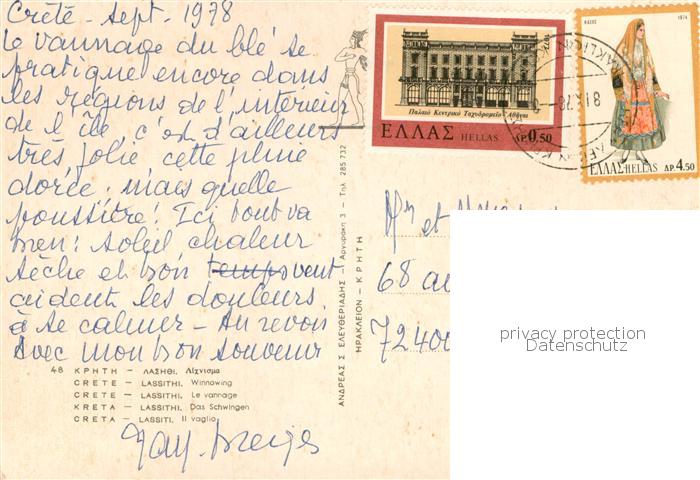 Crète - Sept. 1978
le vannage du blé se
pratique encore dans
les régions de l'intérieur
de l'île, c'est d'ailleurs
très jolie cette pluie
dorée; mais quelle
poussière! Ici tout va
bien: soleil chaleur
sèche et bon temps vent
aident les douleurs
à se calmer - Au revoir
avec mon bon souvenir
48 ΚΡΗΤΗ — ΛΑΣΗΘΙ. Λίχνισμα
CRETE — LASSITHI. Winnowing
CRETE — LASSITHI. Le vannage
KRETA — LASSITHI. Das Schwingen
CRETA — LASSITI. Il vaglio
ΑΝΔΡΕΑΣ Σ. ΕΛΕΥΘΕΡΙΑΔΗΣ - Ι. Αργυράκη 3 — Τηλ. 285 732
ΗΡΑΚΛΕΙΟΝ - ΚΡΗΤΗ
Παλαιό Κεντρικό Ταχυδρομείο - Αθήναι
ΕΛΛΑΣ HELLAS ΔΡ. 0.50
1974
ΕΛΛΑΣ HELLAS ΔΡ. 4.50
Mr et
68 au
72400
privacy protection
Datenschutz